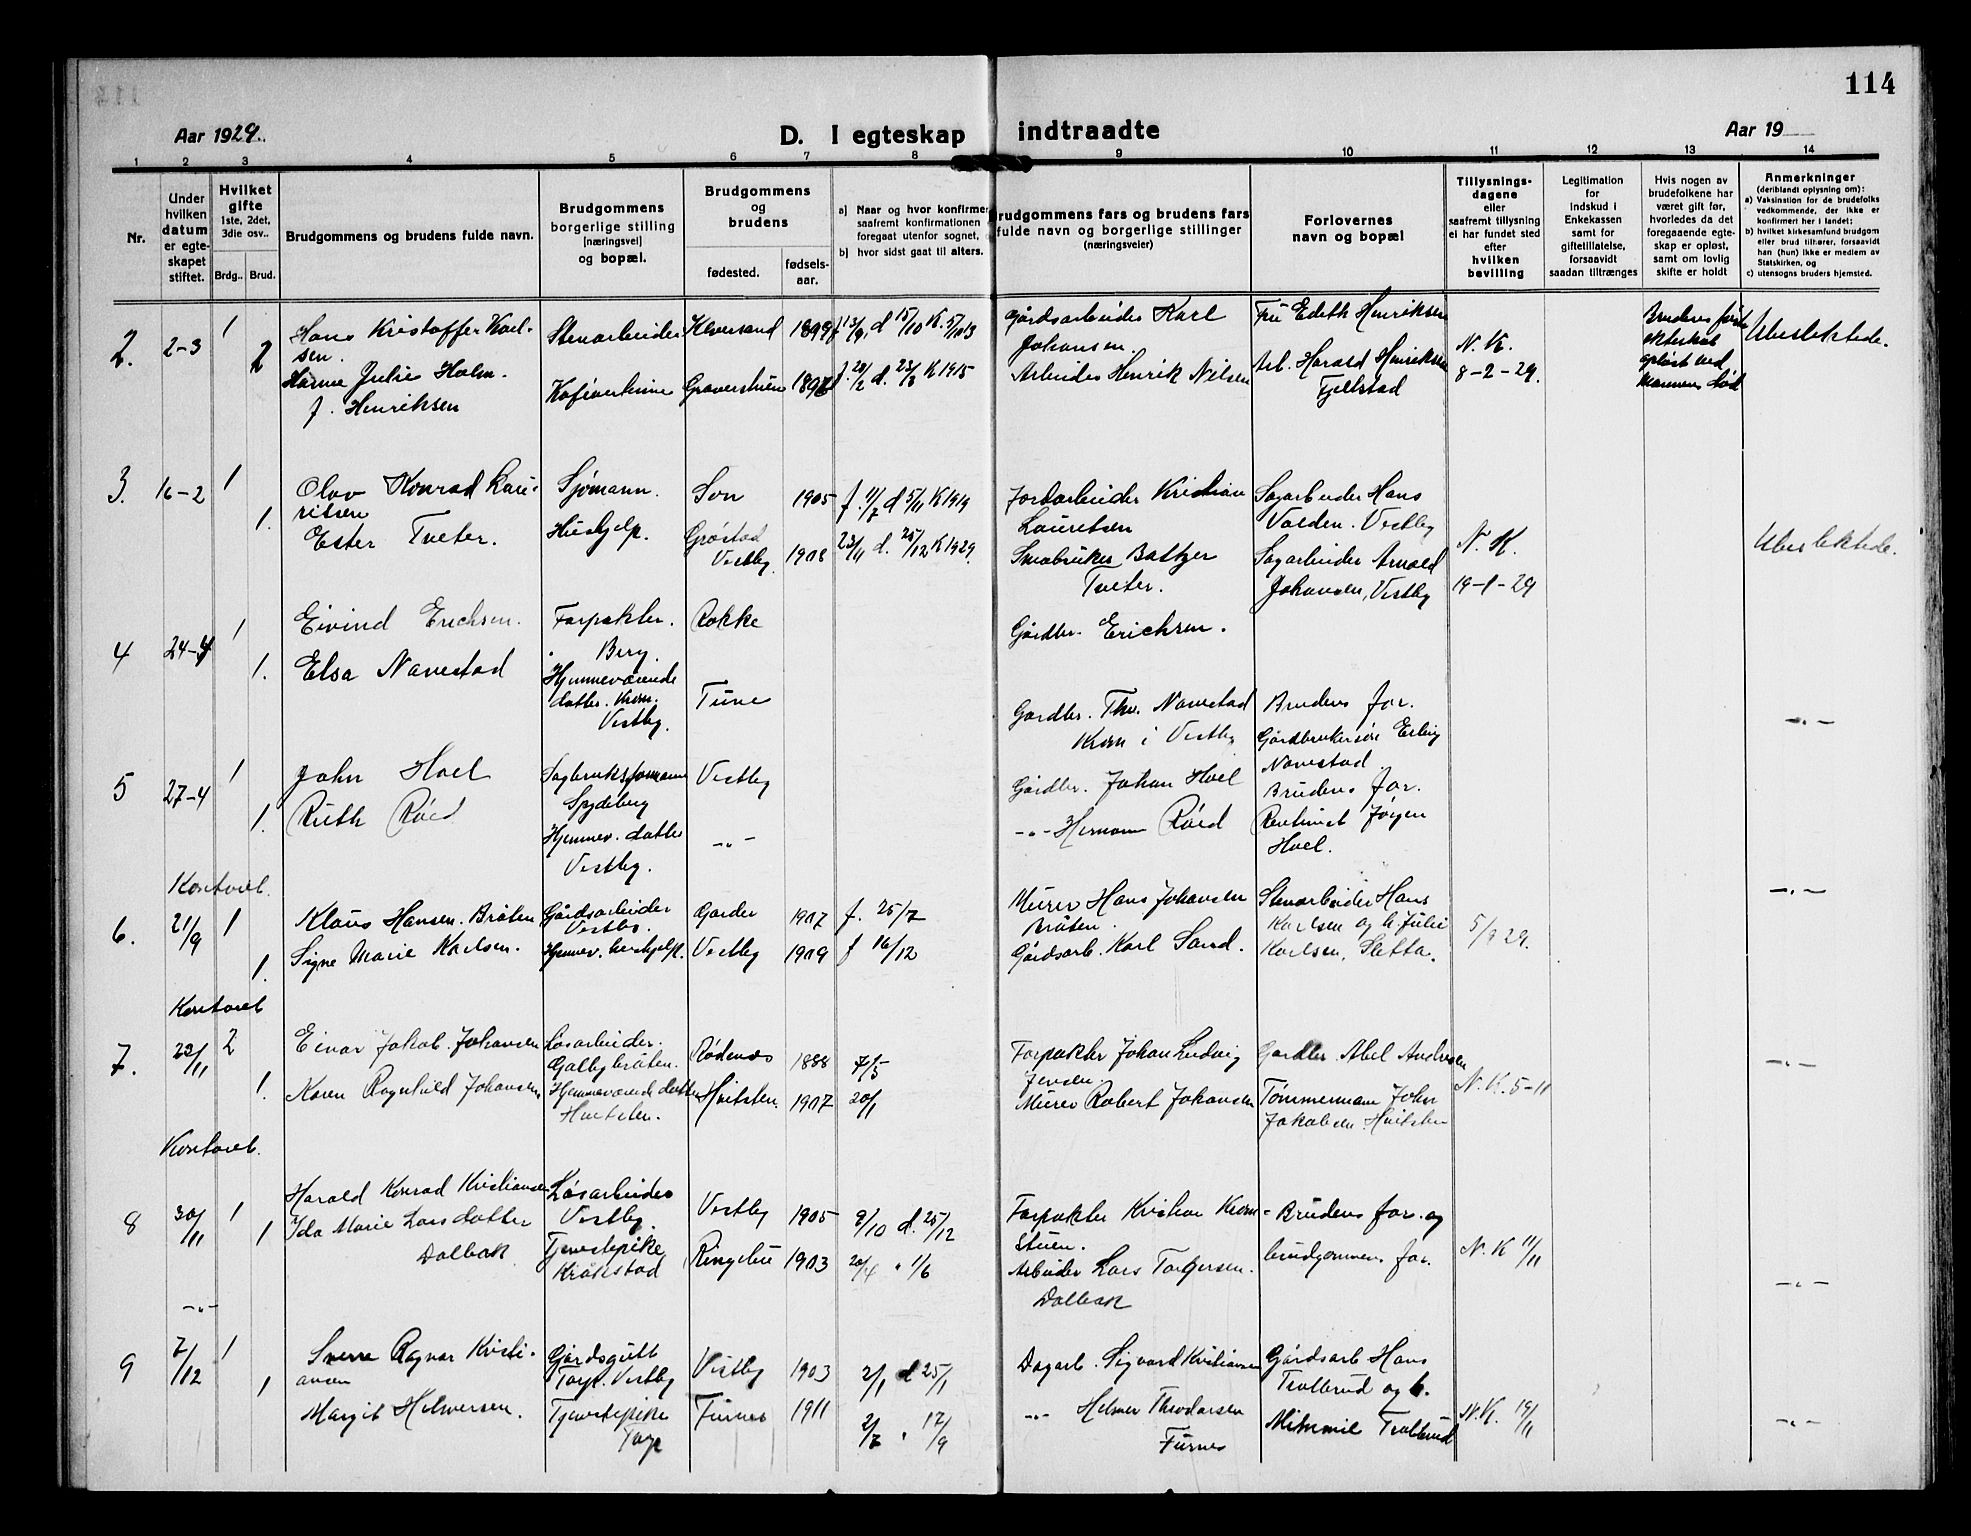 114
Aar 1929.
D. I egteskap indtraadte
Aar 19
1 2 3 4 5 6 7 8 9 10 11 12 13 14
Nr.
Under hvilken datum er egte-skapet stiftet.
Hvilket gifte 1ste, 2det, 3die osv..
Brdg.. Brud.
Brudgommens og brudens fulde navn.
Brudgommens borgerlige stilling [næringsvei] og bopæl.
Brudgommens og brudens
fødested.
fødsels-aar.
a) Naar og hvor konfirmer saafremt konfirmationen foregaat utenfor sognet,
b) hvor sidst gaat til alters.
Brudgommens fars og brudens fars fulde navn og borgerlige stillinger (næringsveier)
Forlovernes navn og bopæl
Tillysnings-dagene eller saafremt tillysning ei har fundet sted efter hvilken bevilling
Legitimation for indskud i Enkekassen samt for giftetillatelse, forsaavidt saadan tiltrænges
Hvis nogen av brudefolkene har været gift før, hvorledes da det foregaaende egte-skap er opløst, samt om lovlig skifte er holdt
Anmerkninger (deriblandt oplysning om): a) Vaksination for de brudefolks vedkommende, der ikke er konfirmert her i landet; b) hvilket kirkesamfund brudgom eller brud tilhører, forsaavidt han (hun) ikke er medlem av Statskirken, og c) utensogns bruders hjemsted.
2. 2-3 1
Hans Kristoffer Karl-
sen.
Stenarbeider
1899 f 13/9. d 15/10 K. 5/10 13
Gårdsarbeider Karl
Johansen.
Fru Edith Henriksen
2
Hanna Julie Holm.
f. Henriksen
f. 28/2 d. 23/3 K 1915
Arbeider Henrik Nilsen
Arb. Harald Henriksen
Fjellstad
N. K.
8-2-29.
Brudens første
ekteskab
opløst ved
Mannens død
Ubeslektede.
3. 16-2 1
Olav Konrad Lau-
ritsen
Sjømann.
Son
1905 f. 11/7 d 5/11 K 1919
Jordarbeider Kristian
Lauritsen
Sagarbeider Hans
Valden. Vestby
1.
Ester Tveter.
Hushjelp.
Grøstad
Vestby
1908 23/11 d. 25/12 K 1929.
Småbruker
Tveter.
Sagarbeider Arnold
Johansen, Vestby
N. K.
19-1-29
Ubeslektede.
4 24-4 1
Eivind Erichsen.
Forpakter.
Berg.
Rokke
Gårdbr. Erichsen.
1.
Elsa Navestad
Hjemmeværende
datter. Krom.
Vestby.
Tune
Gardbr. Thv. Navestad
Krom i Vestby
Brudens far.
Gårdbrukersøn Erling
Navestad.
-„-
5 27-4 1
John Hoel
Sagbruksformann
Spydeberg
Vestby
Gårdbr. Johan Hoel
Brudens far.
1.
Ruth Röed
Hjemmev. datter
Vestby.
-„-
-„- Herman Röed
Rentenist Jörgen
Hoel.
-„-
Kontoret.
6. 21/9 1
Klaus Hansen. Bråten
Gårdsarbeider
Vestby.
Garder
1907 f. 25/7
Murer Hans Johansen
Bråten.
Stenarbeider Hans
Karlsen og h. Julie
Karlsen, Sletta.
1.
Signe Marie Karlsen.
Hjemmev. hushjelp.
Vestby
1909 f 16/12
Gårdsarb. Karl Sand.
5/9 29.
Kontoret
7. 23/11 2
Einar Jakob. Johansen
Løsarbeider.
Galbybråten.
Rødenes
1888 7/5
Forpakter Johan Ludvig
Jensen
Gardbr. Abel Andersen
1.
Karen Ragnhild Johansen.
Hjemmeværende datter
Hvitsten.
Hvitsten.
1907 20/1
Murer Robert Johansen
Tømmermann John
Jakobsen Hvitsten
N. K. 5-11
-„-
Kontoret.
8 30/11 1
Harald Konrad Kristiansen
Løsarbeider
Vestby.
Vestby
1905 9/10 d. 25/12
Forpakter Kristian Krom-
stuen.
Brudens far. og
brudgommens far.
1
Ida Marie Larsdatter
Dalbak
Tjenestepike
Kråkstad
Ringebu
1903 20/4 „ 1/6
Arbeider Lars Torgersen.
Dalbak
N. K 11/11
-„-
-„-
9 7/12 1
Sverre Ragnar Kristi-
ansen
Gårdsgutt
Torp. Vestby
Vestby
1903 2/1 d 25/1
Dagarb. Sigvard Kristiansen
Gårdsarb Hans
Trollerud og h.
Mimmie Trollerud
1
Margit Helmersen.
Tjenestepike
Torp
Furnes
1911 2/7 „ 17/9
-„- Helmer Theodorsen
Furnes
N. K. 19/11
-„-